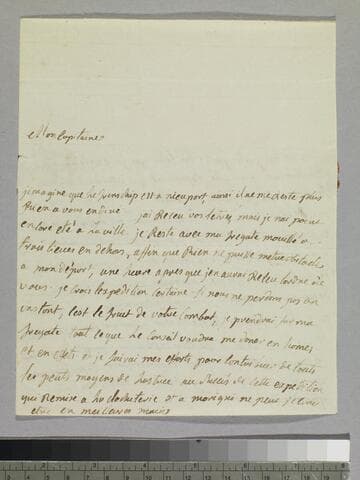 Mon Capitaine
j'imagine que le gunship est a nieuport, ainsi il ne me reste plus
Rien a vous en dire j'ai Receu vos lettres mais je n'ai point
encore eté a la ville. je Reste avec ma fregate mouillé a
trois lieues en dehors, affin que Rien ne puisse mettre obstacle
a mon départ, une heure apres que j'en aurai Receu l'ordre de
vous. je crois l'expedition certaine si nous ne perdons pas un
instant, c'est le fruit de votre combat, je prendrai sur ma
fregate tout ce que le Conseil voudra me donner en hommes
et en effets et je ferai mes efforts pour contribuer de tous
les petits moyens de justice au succes de cette expedition
qui Remise a la et a ne peut
etre en meilleures mains